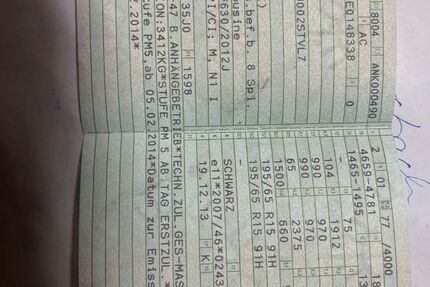 8004 ANK000490
AC
E0148338 0
0002STVL7
)
.bef.b. 8 Spl.
usine
631/2012J
I/CI: M, N1 I
35J0 1598
2 01 77 /4000
4659-4781 18
1465-1495
- 75
104 1912
990 970
990 970
65 2375
1500 660
195/65 R15 91H
195/65 R15 91H
-
SCHWARZ
e11*2007/46*0243
19.12.13 K
47 B.ANHÄNGEBETRIEB*TECHN.ZUL.GES-MAS
ION:3412KG*STUFE PM 5 AB TAG ERSTZUL.*
tufe PM5,ab 05.02.2014*Datum zur Emiss
2.2014*